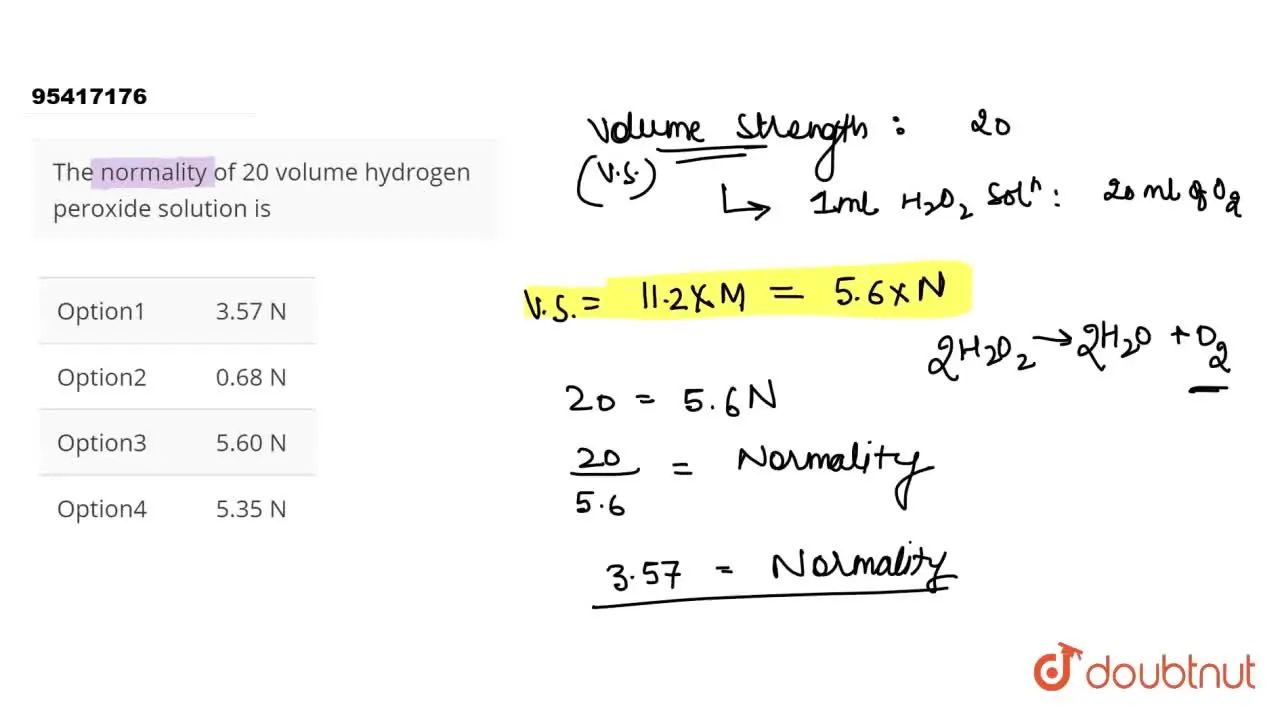 95417176
The normality of 20 volume hydrogen
peroxide solution is
Option1 3.57 N
Option2 0.68 N
Option3 5.60 N
Option4 5.35 N
Volume strength : 20
(V.S.)
↳ 1ml H₂O₂ Solⁿ : 20 ml of O₂
V.S. = 11.2 x M = 5.6 x N
2H₂O₂ → 2H₂O + O₂
20 = 5.6 N
20/5.6 = Normality
3.57 = Normality
doubtnut